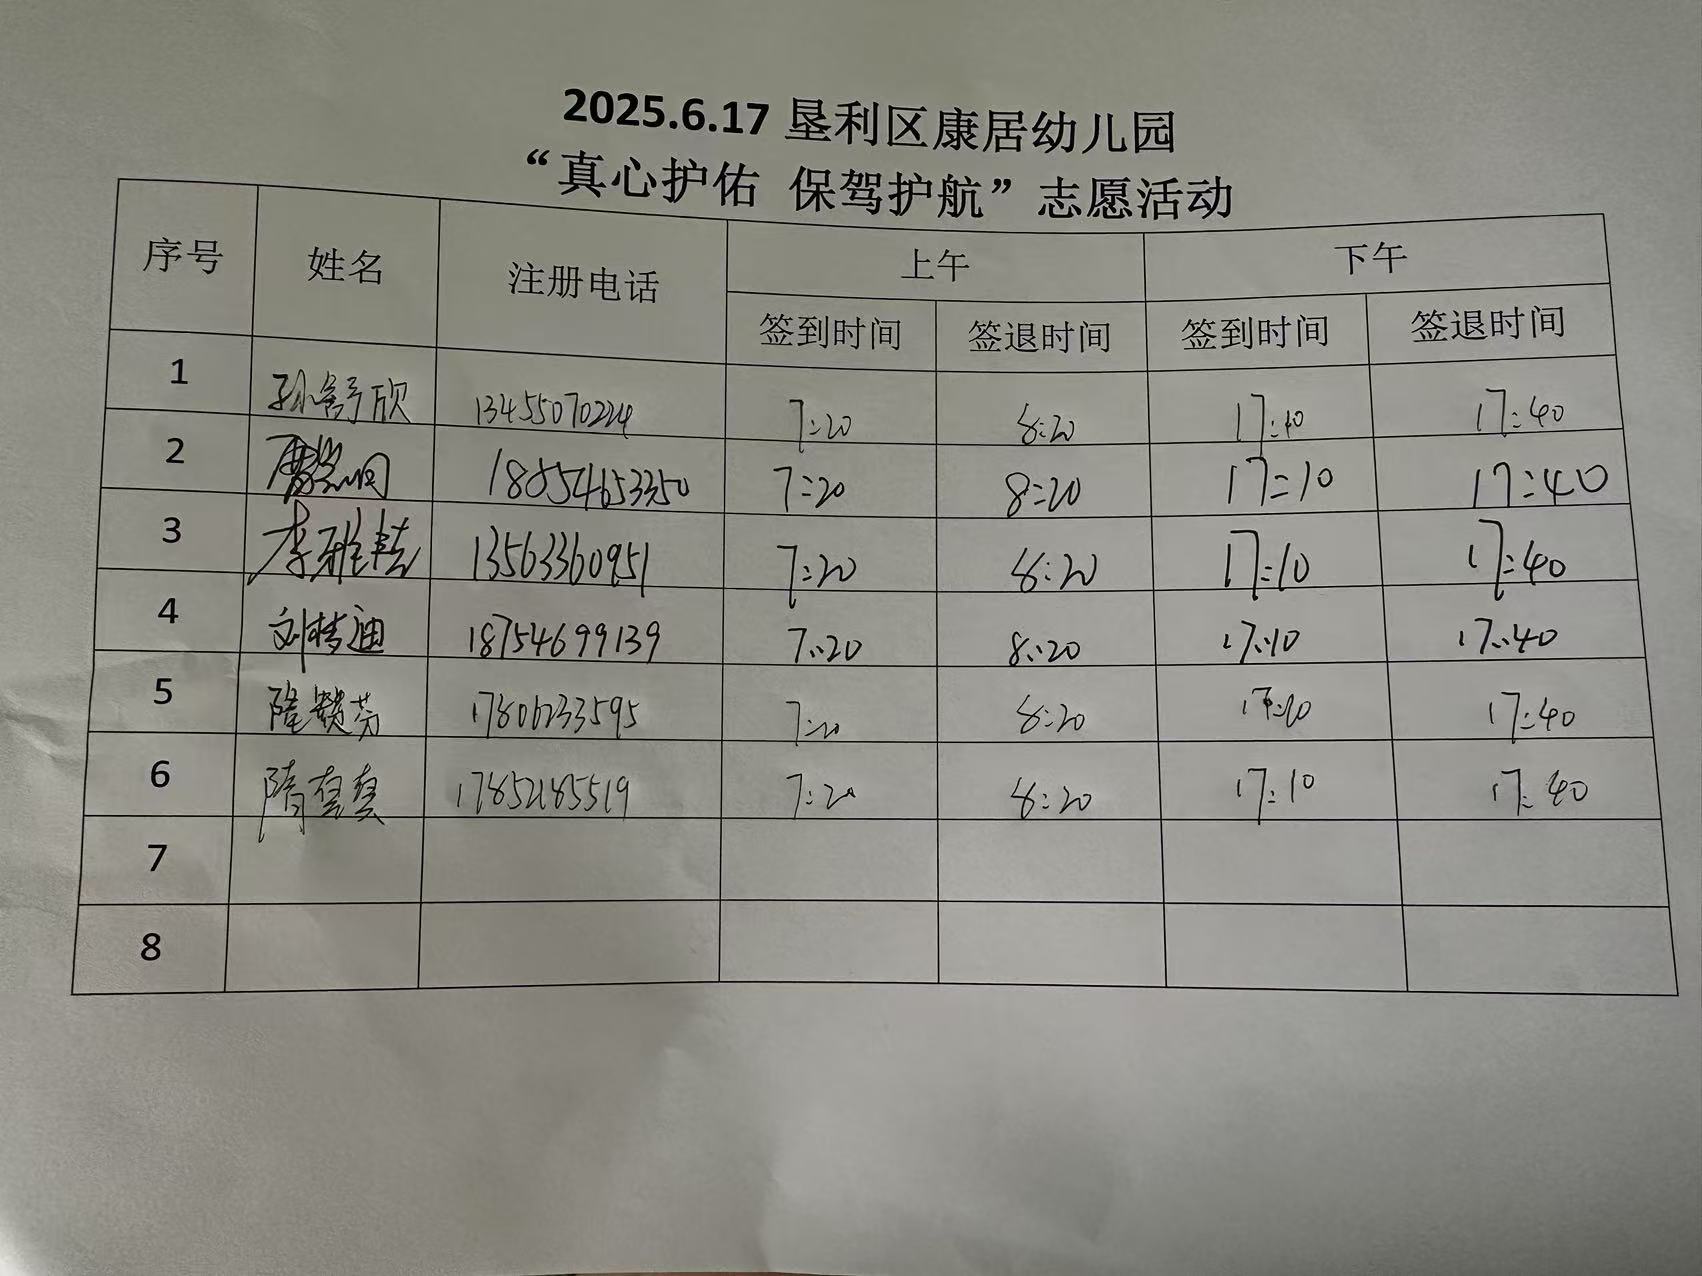 2025.6.17 垦利区康居幼儿园
“真心护佑 保驾护航”志愿活动
序号 姓名 注册电话 上午 下午
签到时间 签退时间 签到时间 签退时间
1 孙舒欣 13455070224 7:20 8:20 17:10 17:40
2 18854653350 7:20 8:20 17:10 17:40
3 李雅洁 13563360951 7:20 8:20 17:10 17:40
4 刘梦迪 18754699139 7:20 8:20 17:10 17:40
5 17806233595 7:20 8:20 17:10 17:40
6 隋真真 17852185519 7:20 8:20 17:10 17:40
7
8